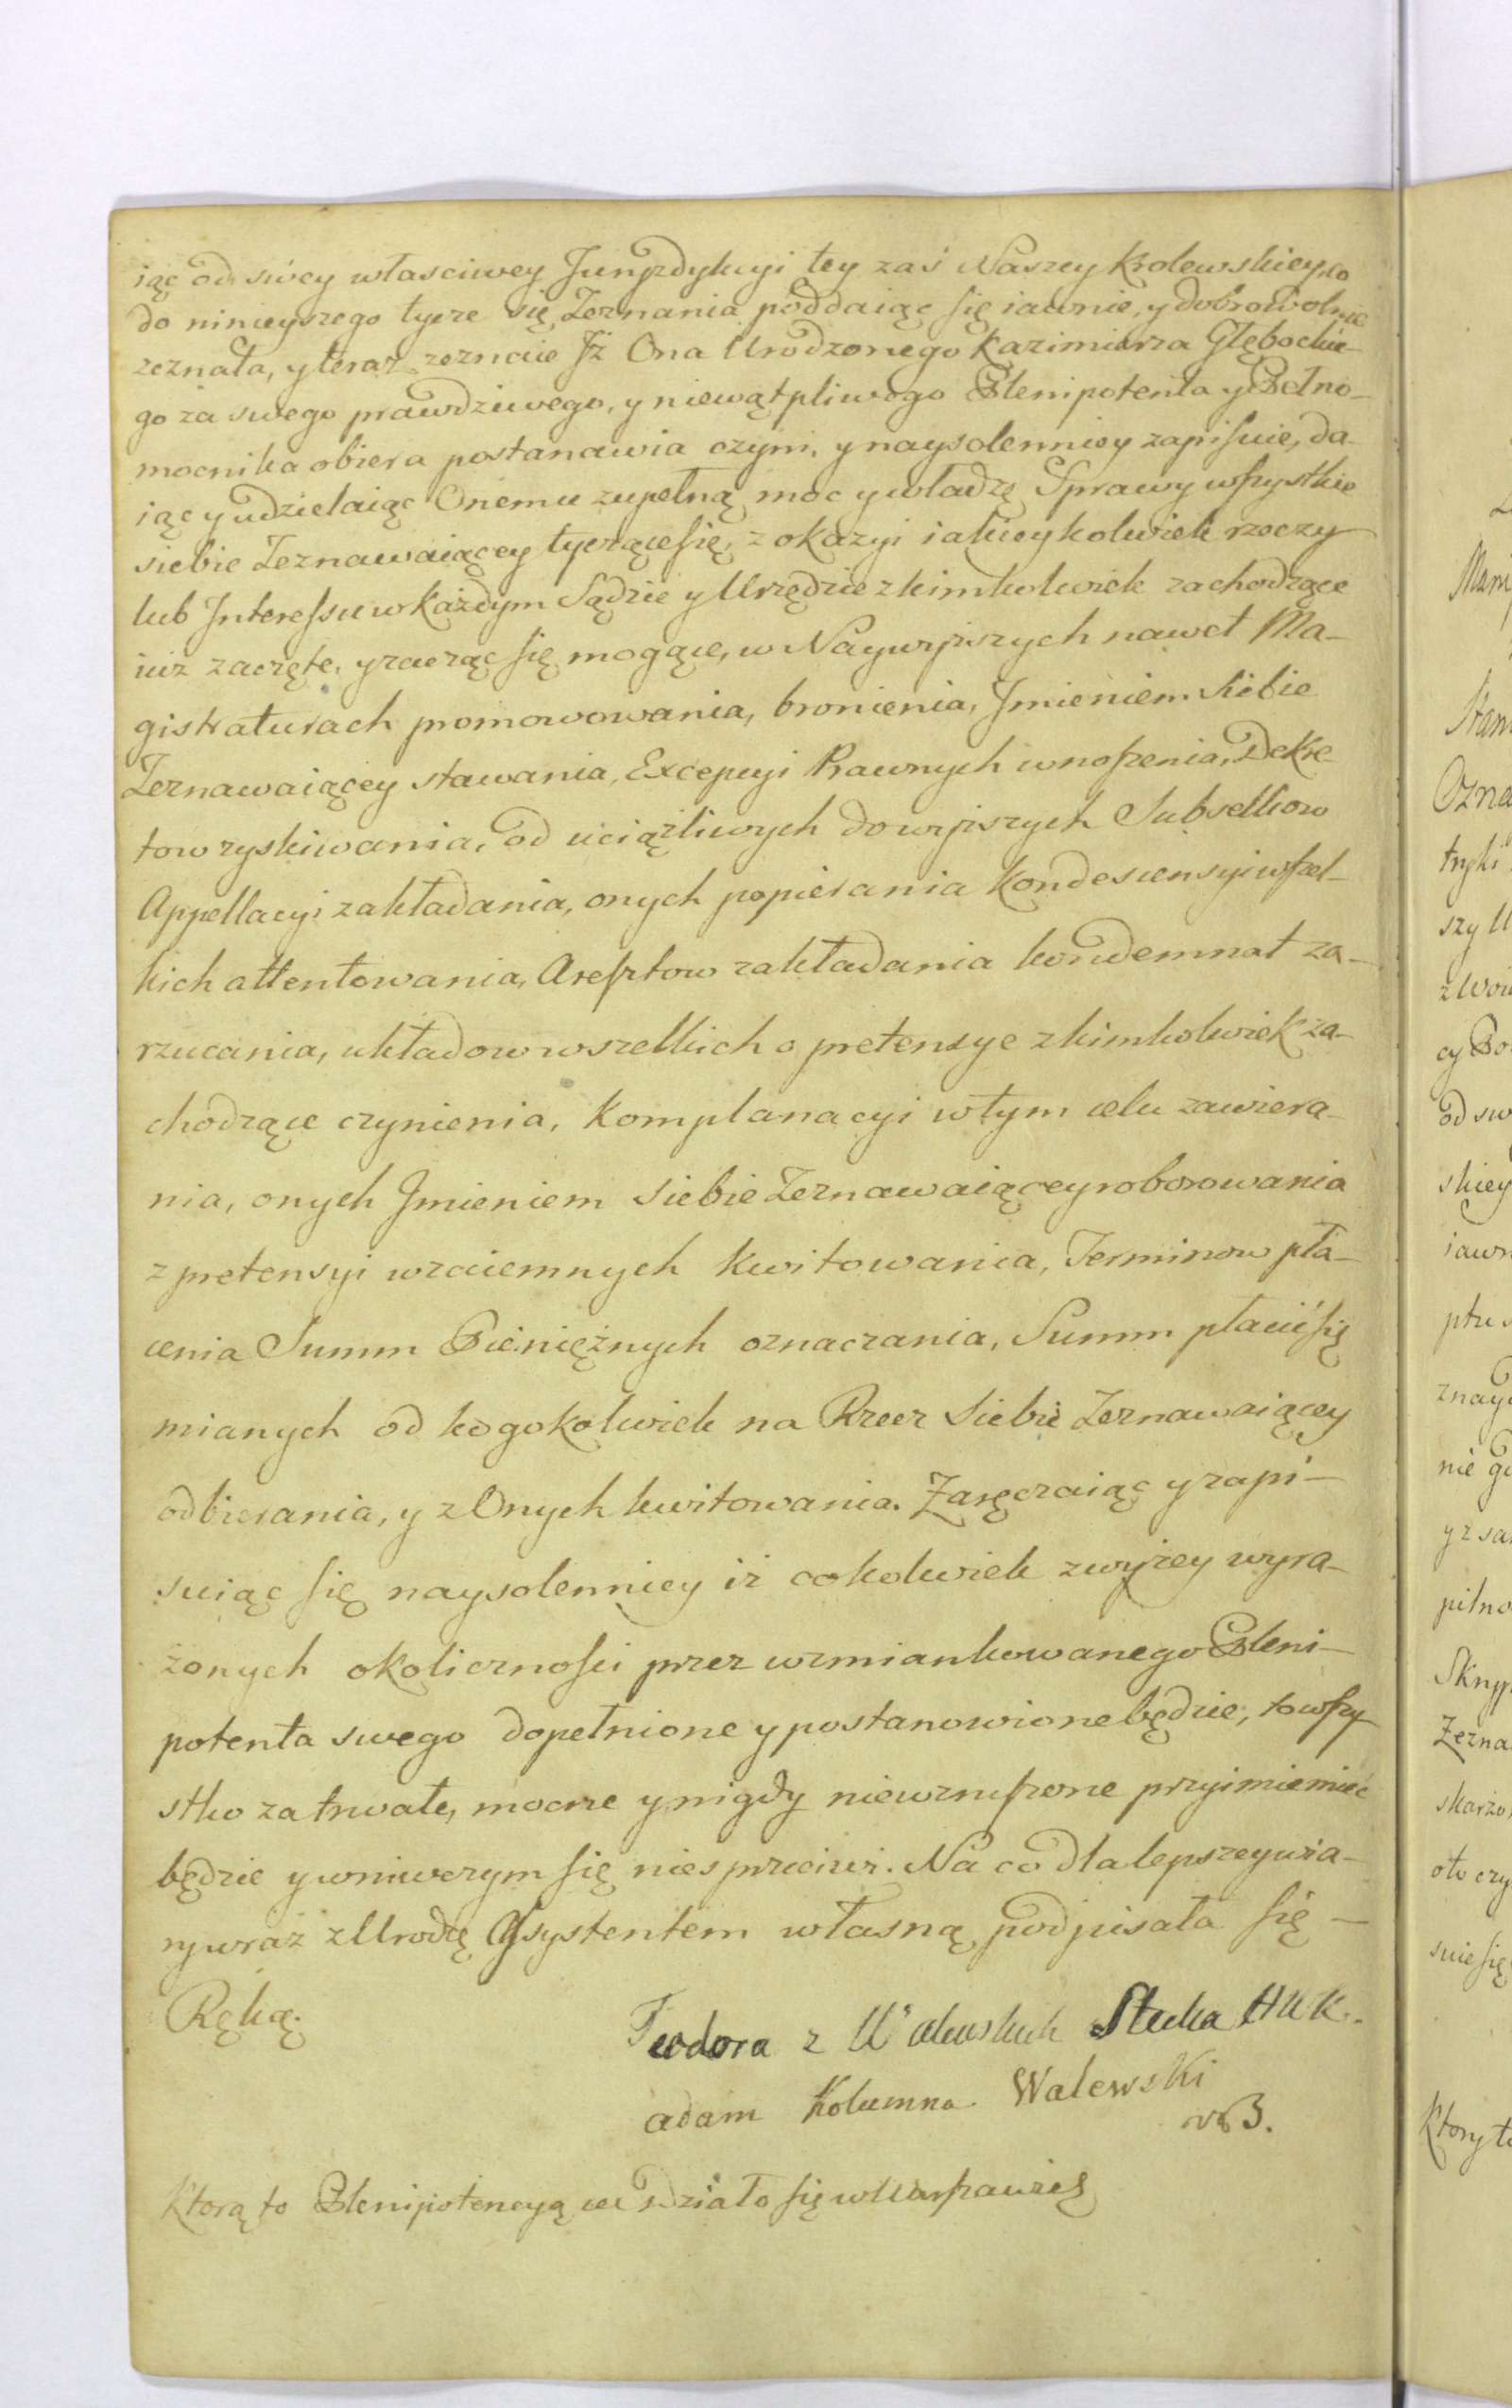 iąc od swey własciwey Juryzdykcyi tey zaś Naszey Krolewskiey co
do ninieyszego tycze się Zeznania poddaiąc się iawnie, y dobrowolnie
zeznała, y teraz zeznaie Jż Ona Urodzonego Kazimierza Głębockie-
go za swego prawdziwego, y niewątpliwego Plenipotenta y Pełno-
mocnika obiera postanawia czyni, y naysolenniey zapisuie, da-
iąc y udzielaiąc Onemu zupełną moc y władzę Sprawy wszystkie
siebie Zeznawaiącey tyczące się, z okazyi iakieykolwiek rzeczy
lub Interessu w każdym Sądzie y Urzędzie z kimkolwiek zachodzące
iuż zaczęte, y zacząc się mogące, w Naywyższych nawet Ma-
gistraturach promowowania, bronienia, Jmieniem Siebie
Zeznawaiącey stawania, Excepcyi Prawnych wnoszenia, Dekre-
tow zyskiwania, od uciążliwych do wyższych Subselliow
Appellacyi zakładania, onych popierania Kondescensyi wszel-
kich attentowania, Aresztow zakładania kondemnat za-
rzucania, układow wszelkich o pretensye z kimkolwiek za-
chodzące czynienia, Komplanacyi w tym celu zawiera-
nia, onych Jmieniem Siebie Zeznawaiącey roborowania
z pretensyi wzaiemnych kwitowania, Terminow pła-
cenia Summ Pieniężnych oznaczania, Summ płacić się
mianych od kogokolwiek na Rzecz Siebie Zeznawaiącey
odbierania, y z Onych kwitowania. Zaręczaiąc y zapi-
suiąc się naysolenniey iż cokolwiek zwyżey wyra-
żonych okoliczności przez wzmiankowanego Pleni-
potenta swego dopełnione y postanowione będzie, to wszy-
stko za trwałe, mocne y nigdy niewzruszone przyimie mieć
będzie y w niwczym się nie sprzeciwi. Na co dla lepszey wia-
ry wraz z Urodzę Assystentem własną podpisała się —
Ręką.
Teodora z Walewskich Stecka HWK.
adam Kolumna Walewski
Ktorą to Plenipotencyą działo się w Warszawie
Mam
Ozna
tryki
szy U
z Woie
od sw
skiey
iawn
znay
nie go
y z sa
pilno
Zezna
suie się
Ktory to